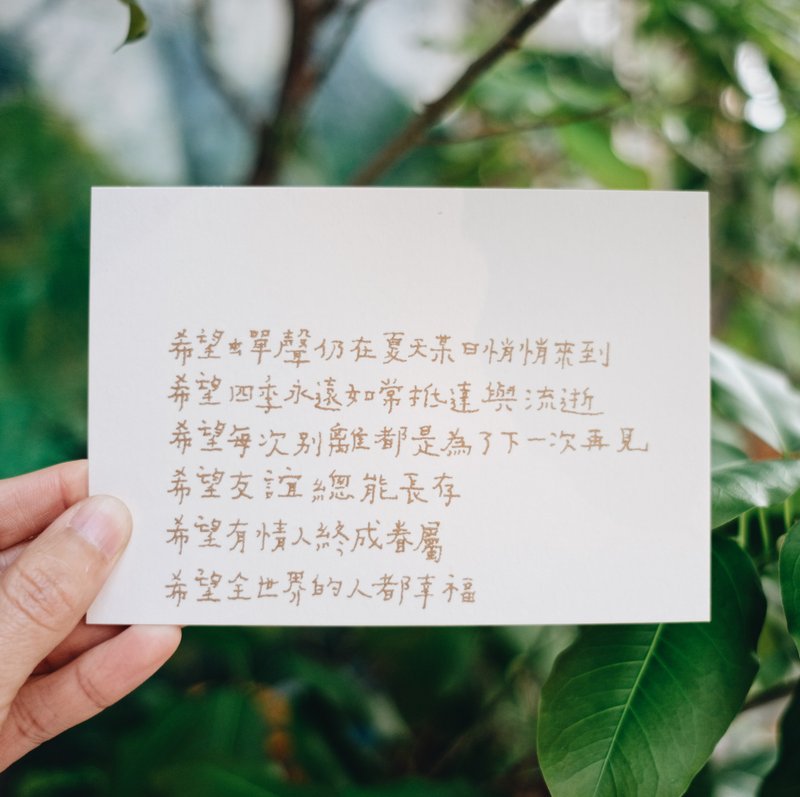 希望蟬聲仍在夏天某日悄悄來到
希望四季永遠如常抵達與流逝
希望每次別離都是為了下一次再見
希望友誼總能長存
希望有情人終成眷屬
希望全世界的人都幸福